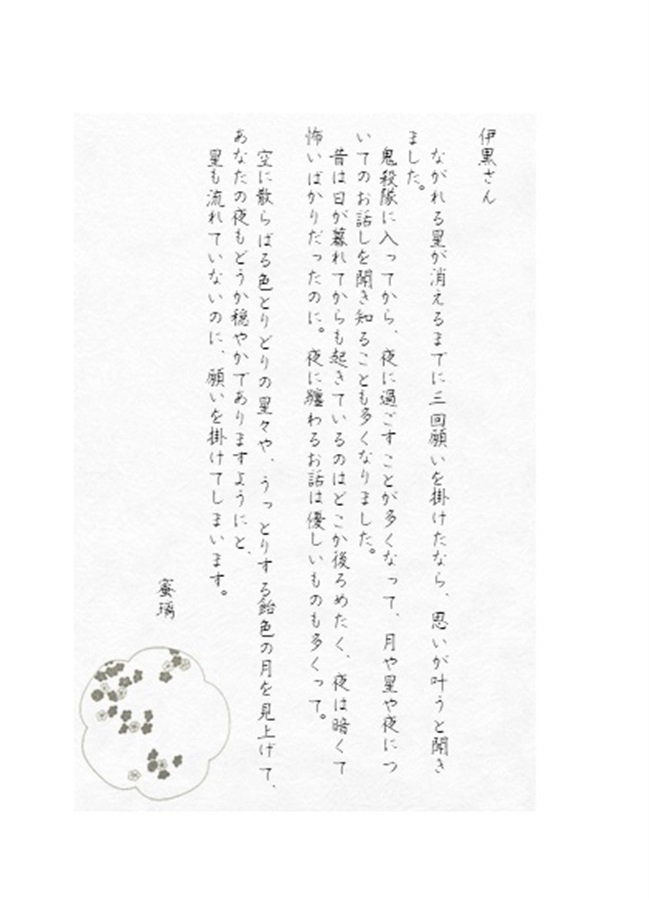 伊黒さん
ながれる星が消えるまでに三回願いを掛けたなら、思いが叶うと聞き
ました。
鬼殺隊に入ってから、夜に過ごすことが多くなって、月や星や夜につ
いてのお話しを聞き知ることも多くなりました。
昔は日が暮れてからも起きているのはどこか後ろめたく、夜は暗くて
怖いばかりだったのに。夜に纏わるお話は優しいものも多くって。
空に散らばる色とりどりの星々や、うっとりする飴色の月を見上げて、
あなたの夜もどうか穏やかでありますようにと、
星も流れていないのに、願いを掛けてしまいます。
蜜璃